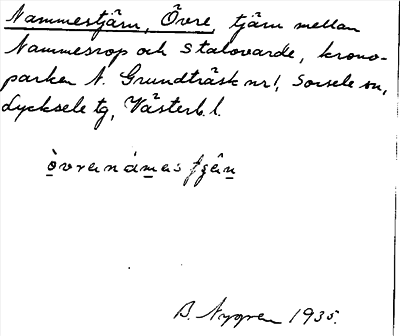 Nammestjärn, Övre, tjärn mellan
Nammesrop och Stalovarde, krono-
parken N. Grundträsk nr 1, Sorsele sn,
Lycksele tg, Västerb. l.
òvranámas
B. Nygren 1935.